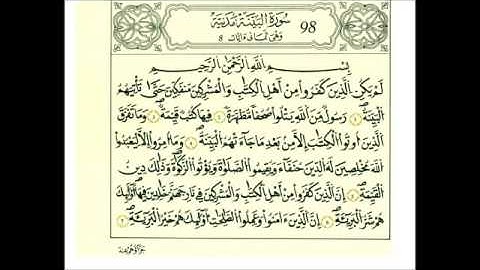 سُورَةُ الْبَيِّنَةِ مَدَنِيَّة 98
وَهِيَ ثَمَانِي ءَايَات 8
بِسْمِ اللَّهِ الرَّحْمَٰنِ الرَّحِيمِ
لَمْ يَكُنِ الَّذِينَ كَفَرُوا مِنْ أَهْلِ الْكِتَٰبِ وَالْمُشْرِكِينَ مُنفَكِّينَ حَتَّىٰ تَأْتِيَهُمُ
الْبَيِّنَةُ رَسُولٌ مِّنَ اللَّهِ يَتْلُوا صُحُفًا مُّطَهَّرَةً فِيهَا كُتُبٌ قَيِّمَةٌ وَمَا تَفَرَّقَ
الَّذِينَ أُوتُوا الْكِتَٰبَ إِلَّا مِنْ بَعْدِ مَا جَاءَتْهُمُ الْبَيِّنَةُ وَمَا أُمِرُوا إِلَّا لِيَعْبُدُوا
اللَّهَ مُخْلِصِينَ لَهُ الدِّينَ حُنَفَاءَ وَيُقِيمُوا الصَّلَوٰةَ وَيُؤْتُوا الزَّكَوٰةَ وَذَٰلِكَ دِينُ
الْقَيِّمَةِ إِنَّ الَّذِينَ كَفَرُوا مِنْ أَهْلِ الْكِتَٰبِ وَالْمُشْرِكِينَ فِي نَارِ جَهَنَّمَ خَٰلِدِينَ فِيهَا أُولَٰئِكَ
هُمْ شَرُّ الْبَرِيئَةِ إِنَّ الَّذِينَ ءَامَنُوا وَعَمِلُوا الصَّٰلِحَٰتِ أُولَٰئِكَ هُمْ خَيْرُ الْبَرِيئَةِ
جَزَاؤُهُمْ عِندَ